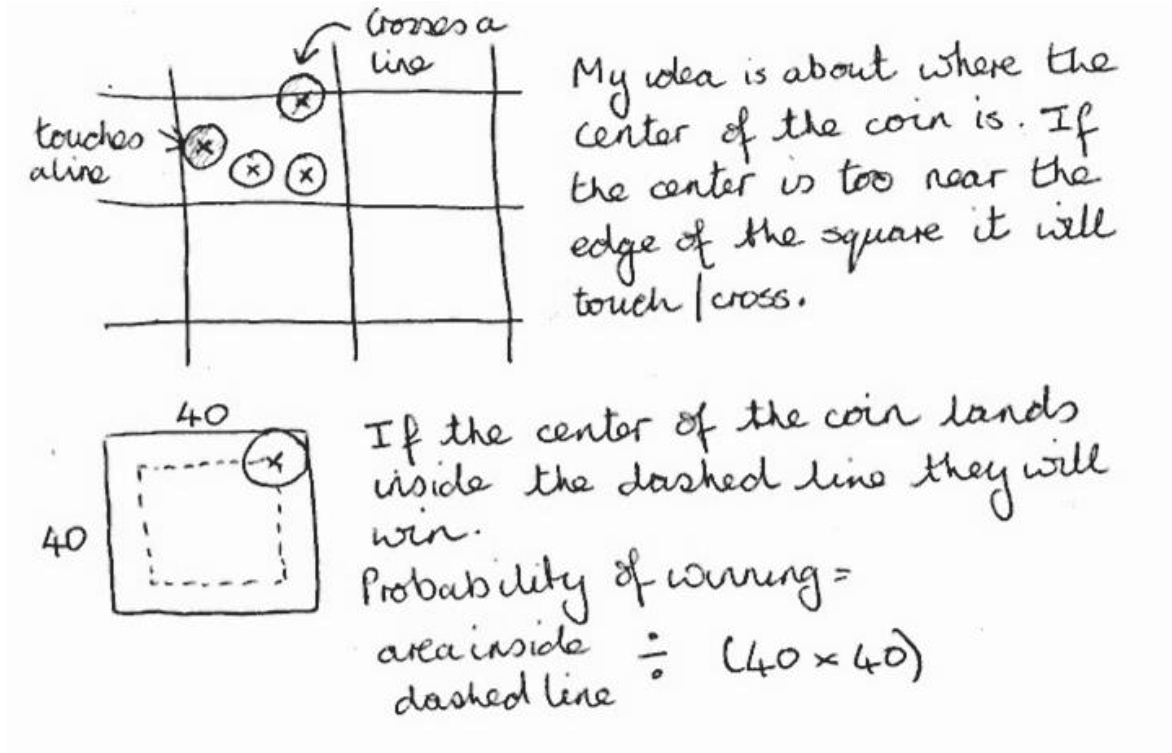 Crosses a
line
touches
a line
My idea is about where the
center of the coin is. If
the center is too near the
edge of the square it will
touch/cross.
40
40
If the center of the coin lands
inside the dashed line they will
win.
Probability of winning =
area inside
dashed line ÷ (40 × 40)